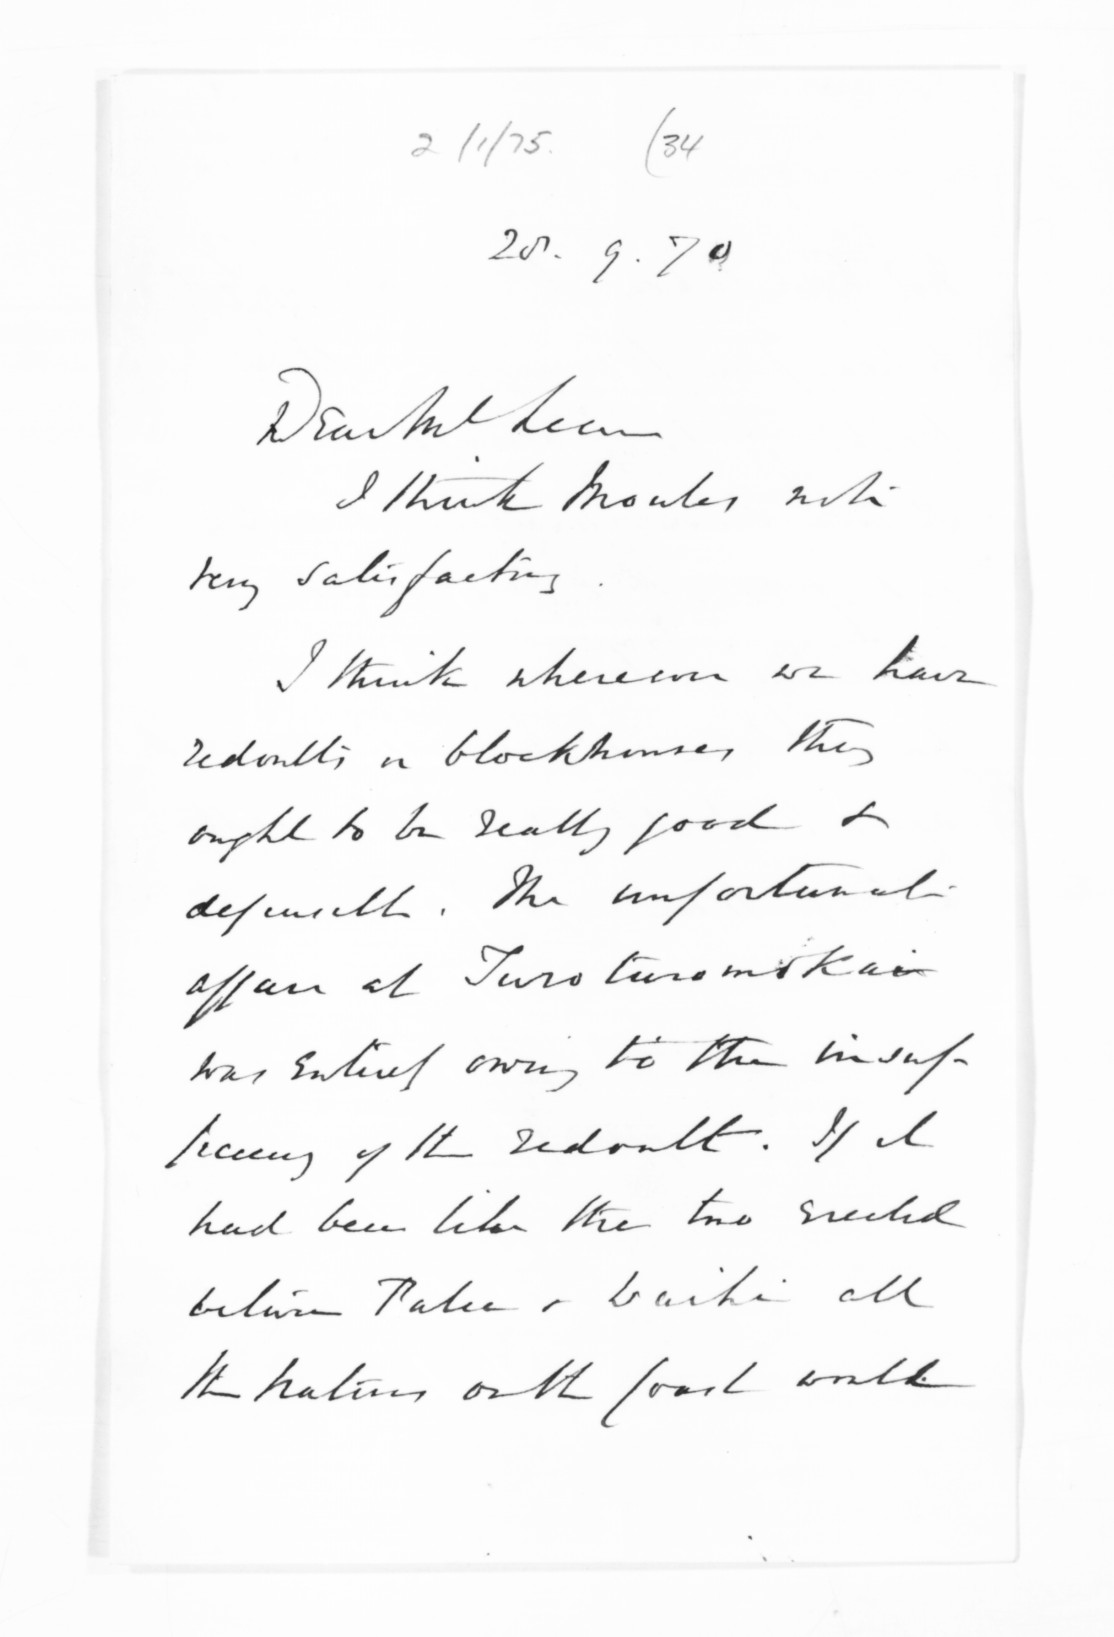 2/1/75. (34
28. 9. 70
Dear McLean
I think Moules not
very satisfactory.
I think wherever we have
redoubts or blockhouses they
ought to be really good &
defensible. The unfortunate
affair at Turoturomokai
was entirely owing to the insuf-
ficiency of the redoubt. If it
had been like the two erected
between Patea & Waihi all
the natives on the Coast would